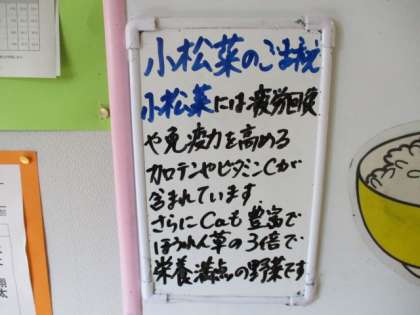 小松菜のご注税
小松菜には疲労回復
や免疫力を高める
カロテンやビタミンCが
含まれています
さらにCaも豊富で
ほうれん草の3倍で
栄養満点の野菜です
翔
太